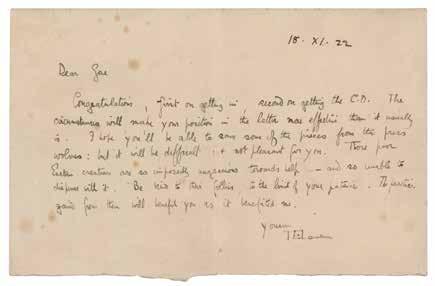 18. XI. 22
Dear Gore
Congratulations, first on getting in, second on getting the C.D. The
circumstances will make your position in the latter more effective than it usually
is. I hope you'll be able to save some of the pieces from the press
wolves: but it will be difficult: & not pleasant for you. Those poor
Eastern creatures are so imposedly suspicious towards help – and so unable to
dispense with it. Be kind to their follies, to the limit of your patience. The patience
gained from them will benefit you as it benefited me.
Yours
TELawrence